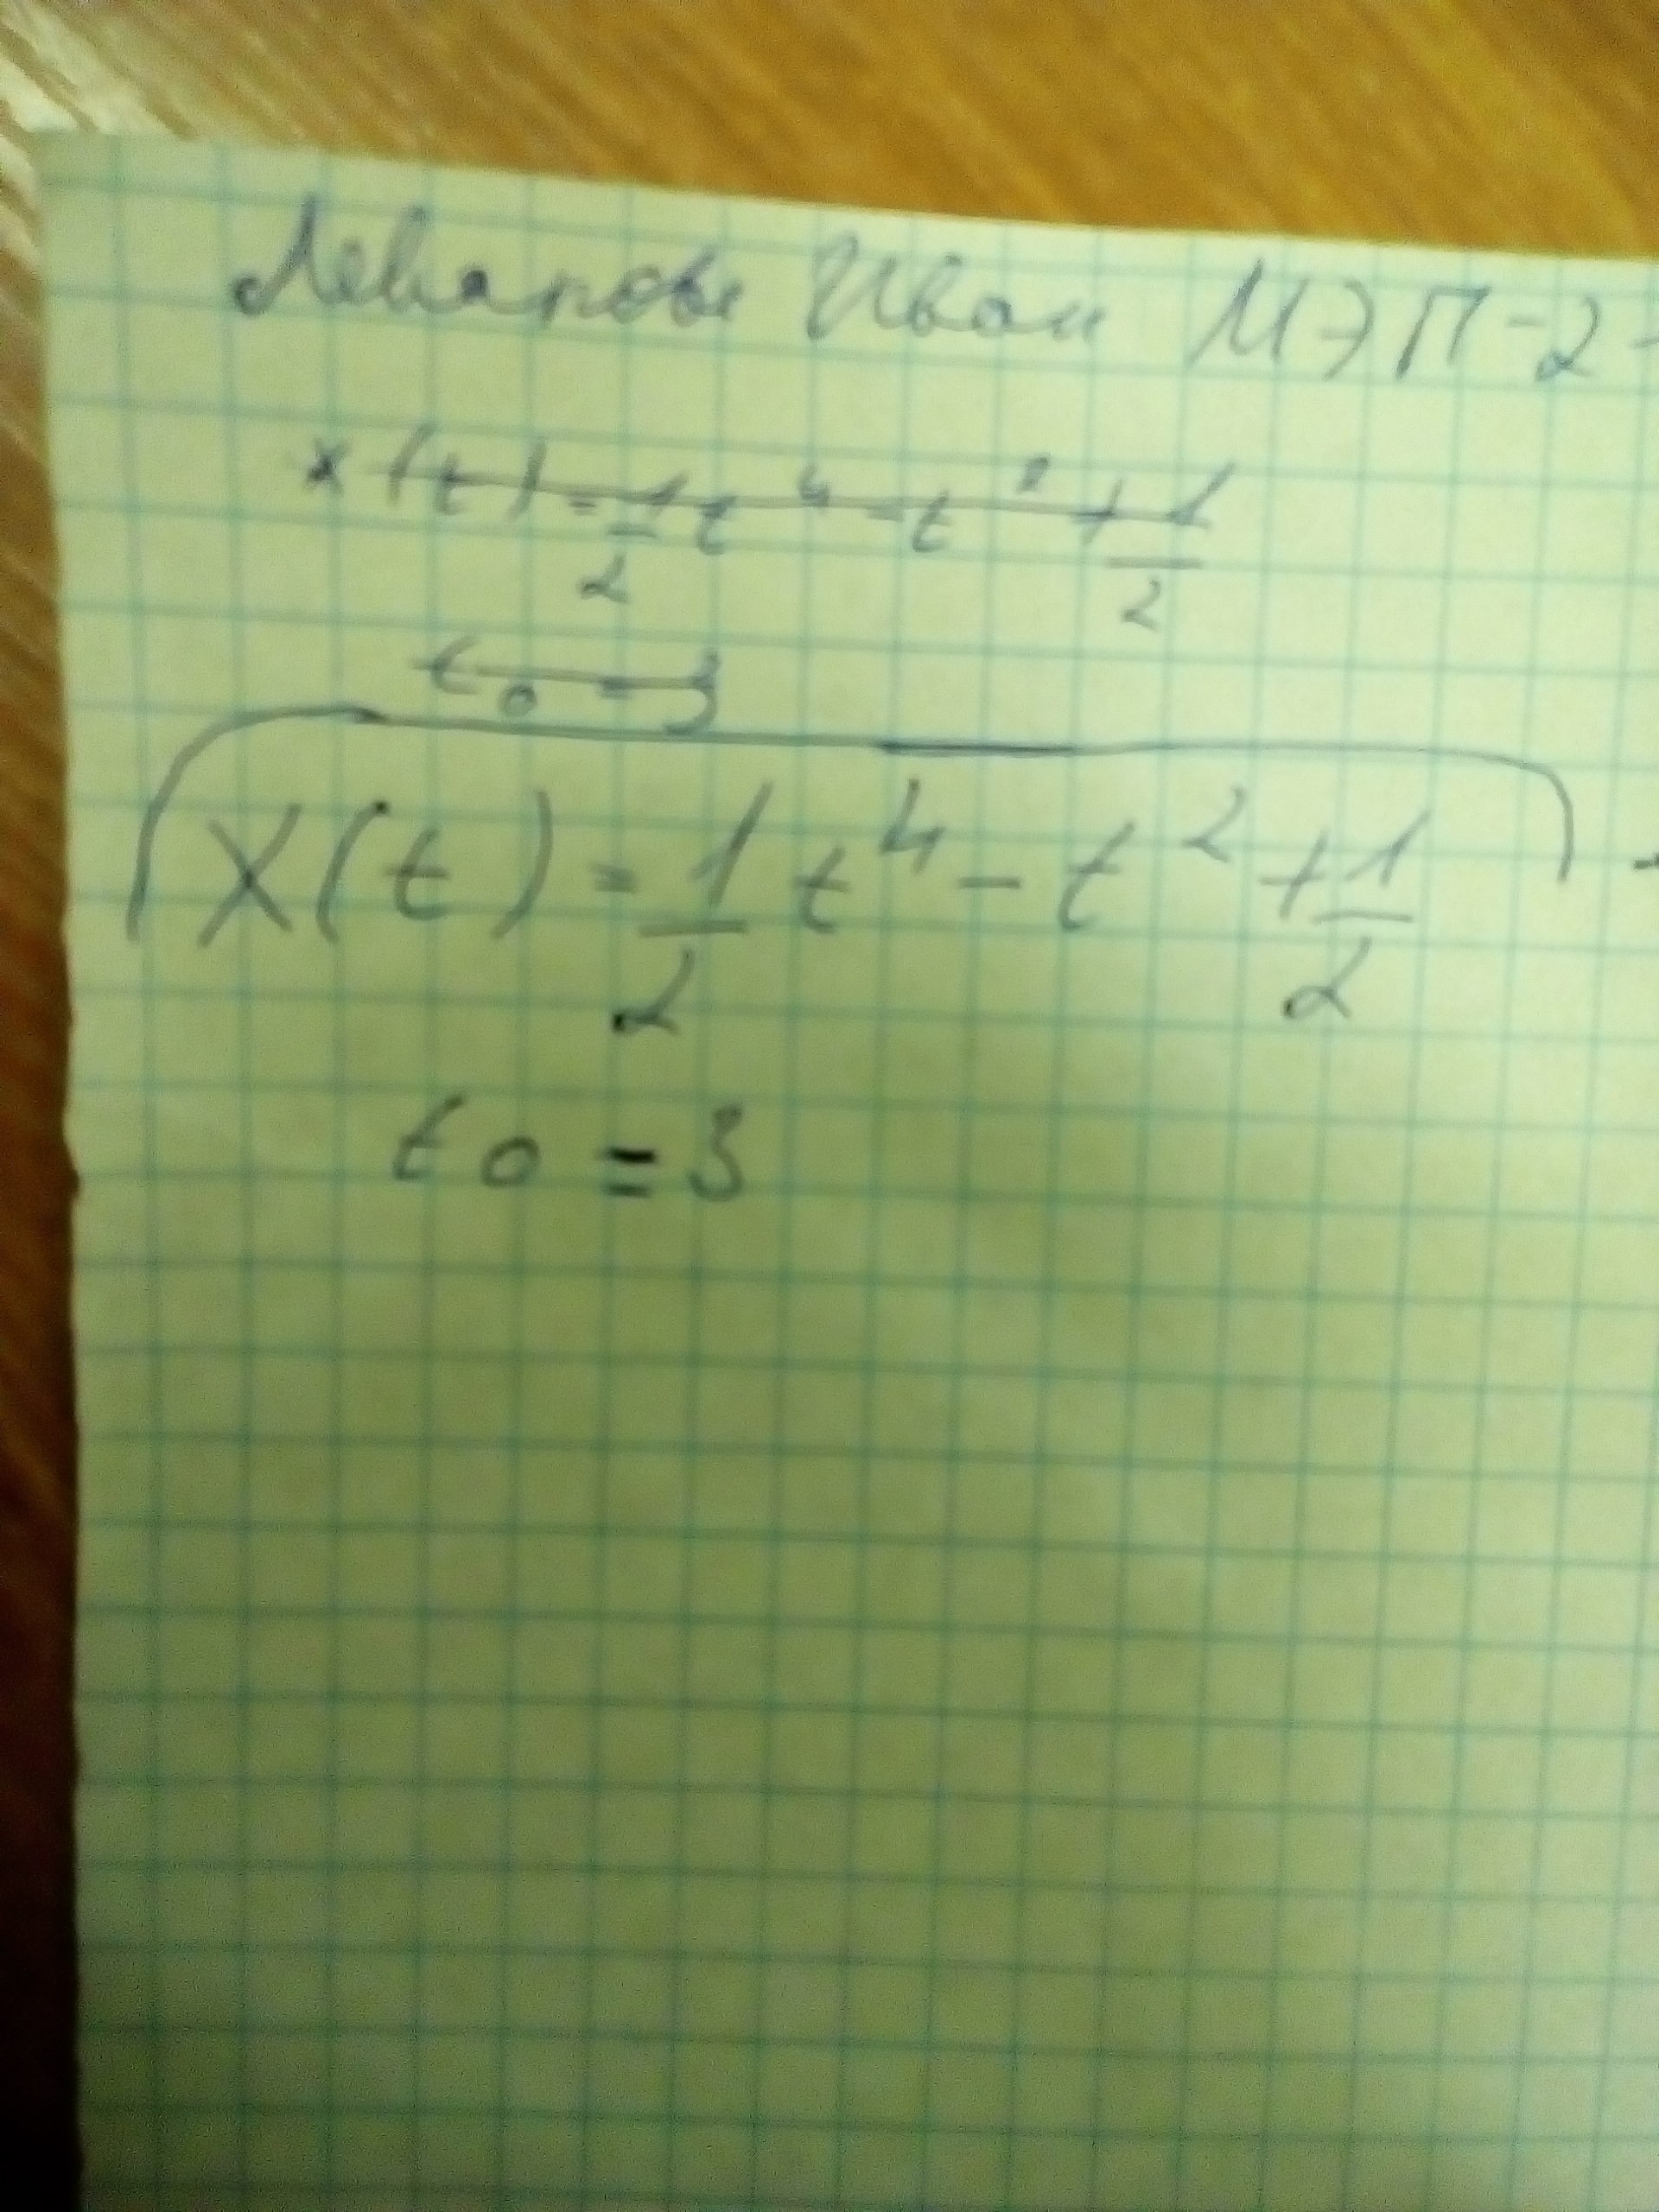 Иван МЭП-2-
x(t)=1/2 t⁴-t²+1/2
t₀=3
X(t)=1/2 t⁴-t²+1/2
t₀=3